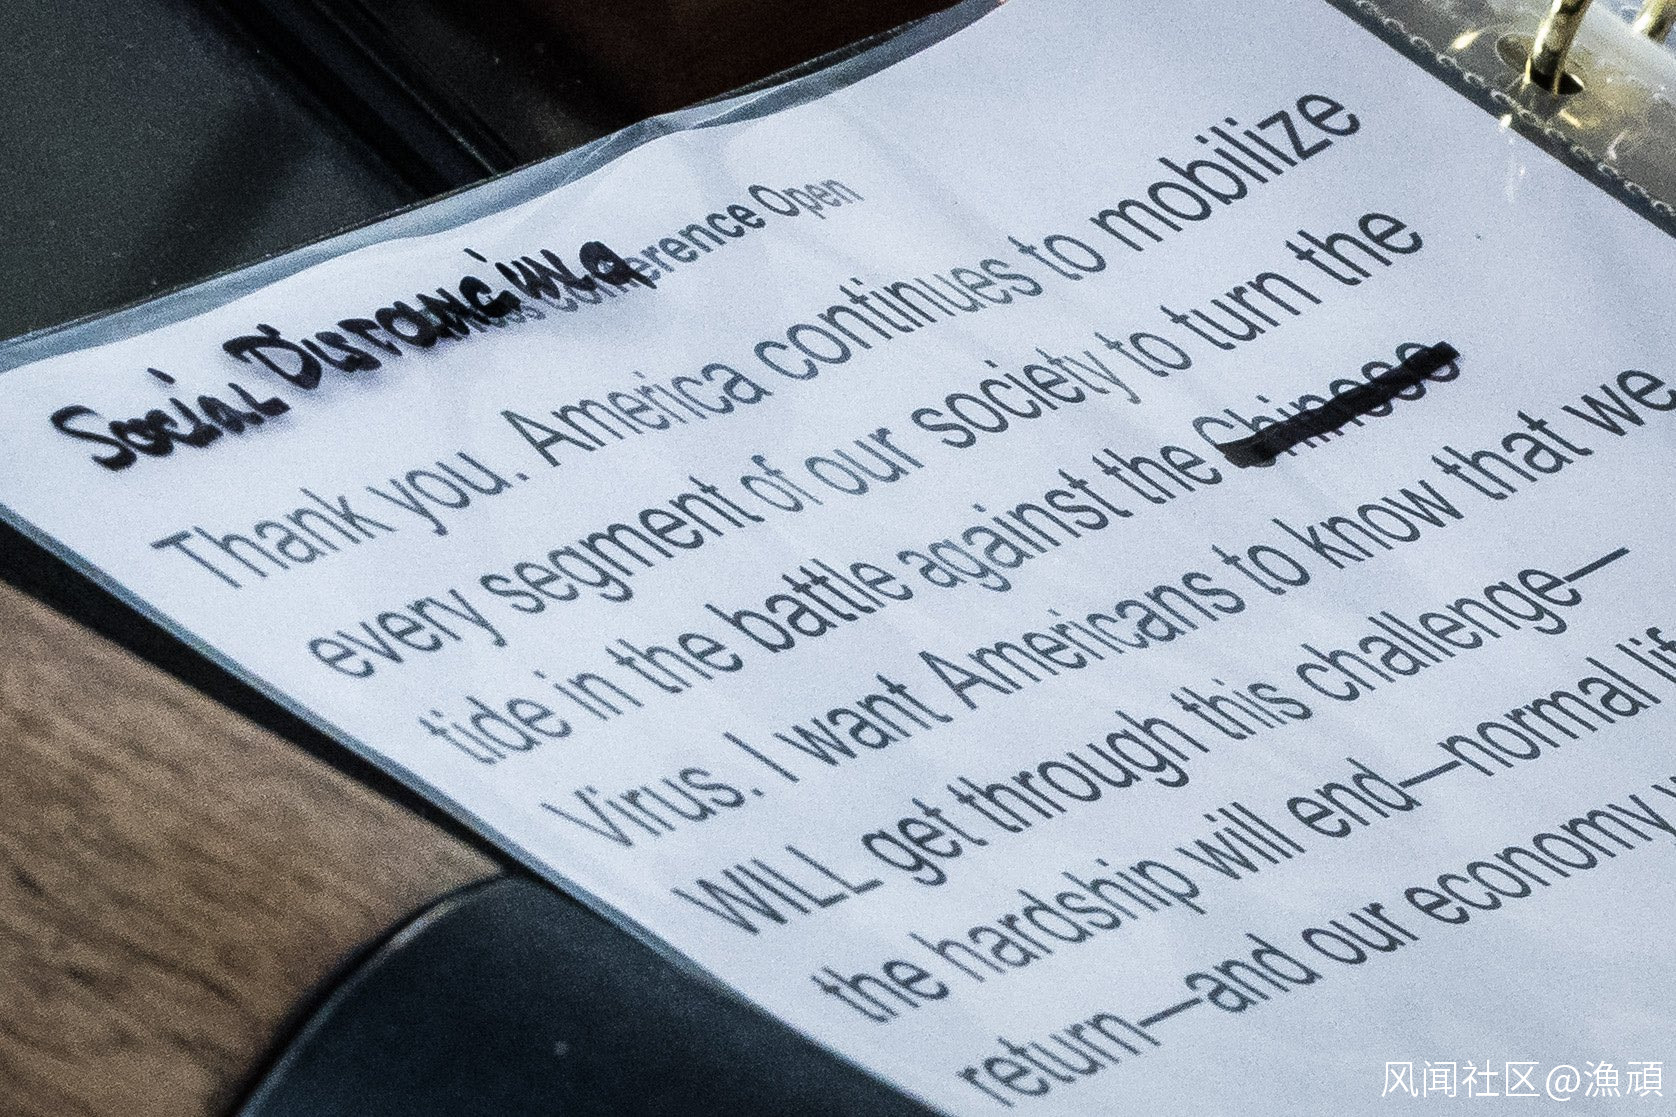 Social Distancing
Conference Open
Thank you. America continues to mobilize
every segment of our society to turn the
tide in the battle against the Chinese
Virus. I want Americans to know that we
WILL get through this challenge—
the hardship will end—normal
return—and our economy
风闻社区@漁頑